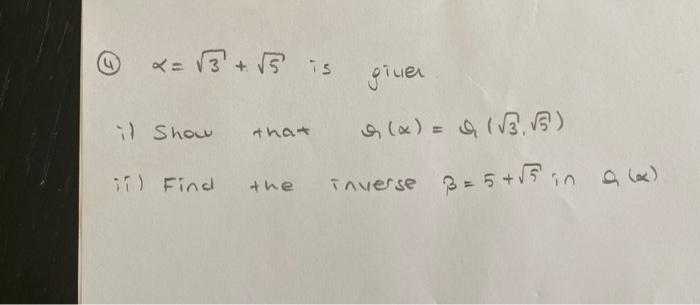 ④ α = √3 + √5 is given
i) Show that Q(α) = Q(√3, √5)
ii) Find the inverse β = 5 + √5 in Q(α)